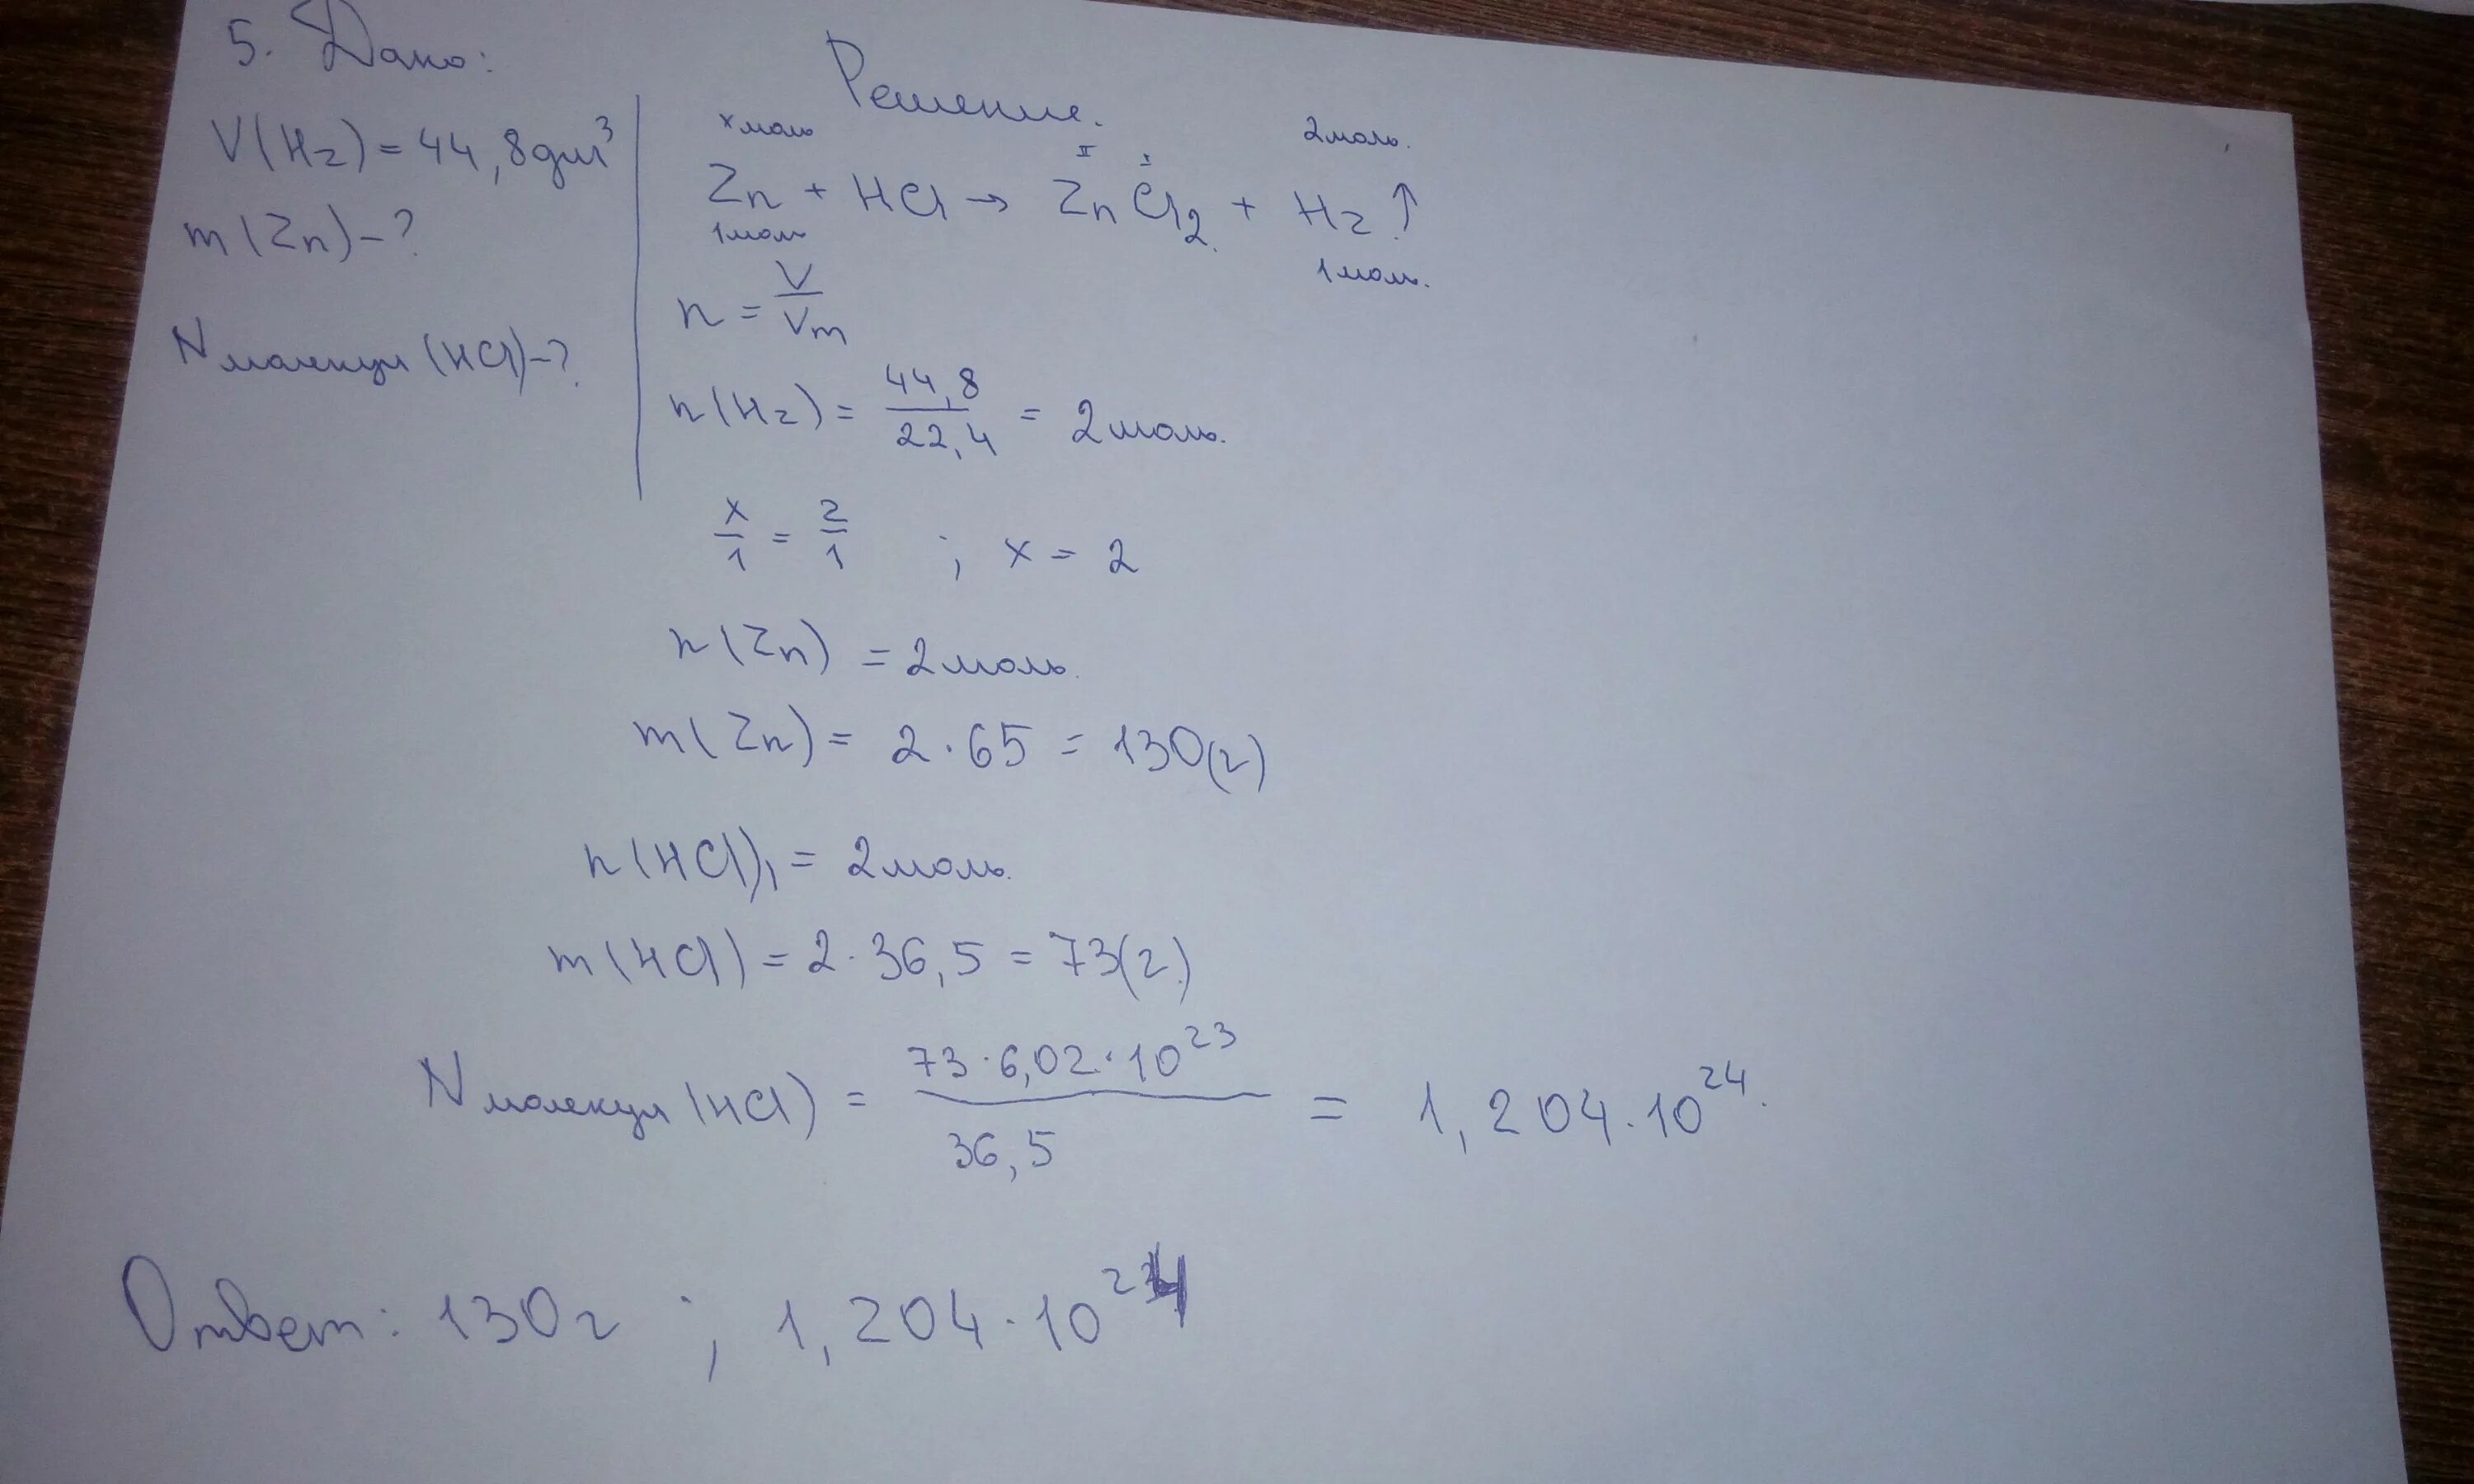 5. Дано:
V(H₂) = 44,8 дм³
m(Zn) - ?
N молекул (HCl) - ?
Решение.
х моль 2 моль.
II I
Zn + HCl → ZnCl₂ + H₂ ↑
1 моль 1 моль.
n = V/Vm
n(H₂) = 44,8/22,4 = 2 моль.
x/1 = 2/1 ; x = 2
n(Zn) = 2 моль.
m(Zn) = 2 · 65 = 130(г)
n(HCl)₁ = 2 моль.
m(HCl) = 2 · 36,5 = 73(г)
N молекул (HCl) = 73 · 6,02 · 10²³/36,5 = 1,204 · 10²⁴.
Ответ: 130 г ; 1,204 · 10²⁴